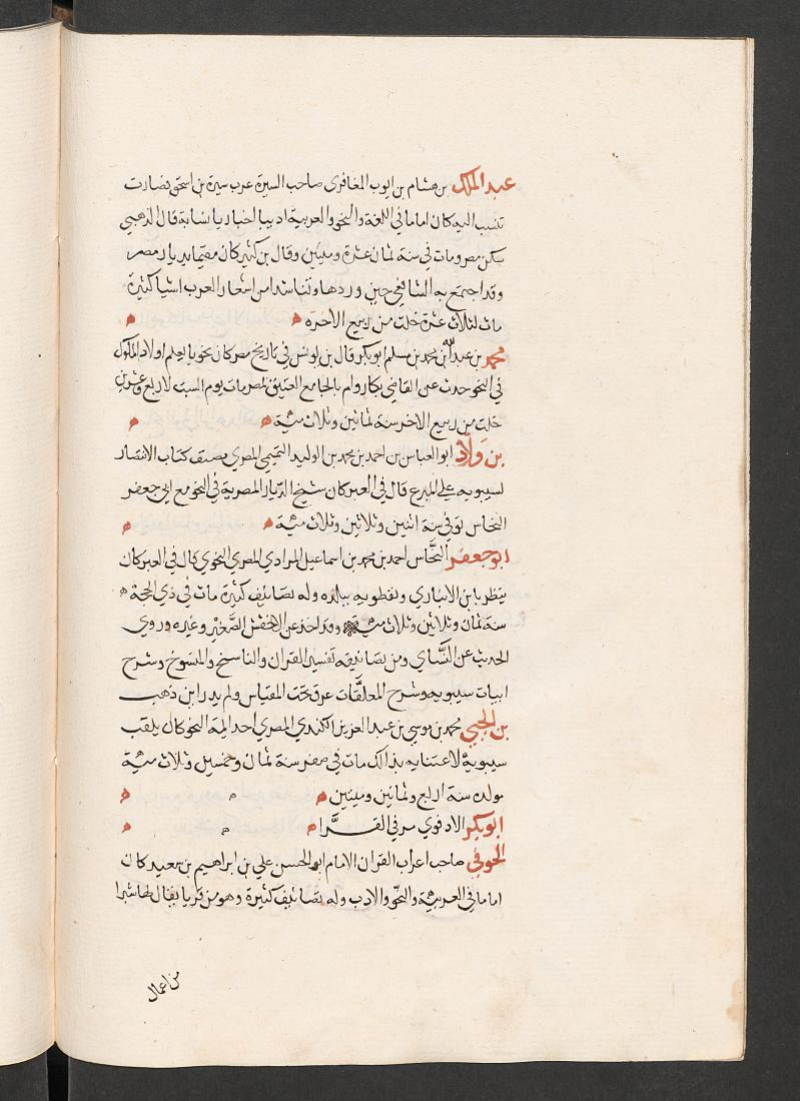 عبد الملك بن هشام بن ايوب المغافرى صاحب السيرة عرب سيرة بن اسحق فصارت
تنسب اليه كان اماما في اللغة والنحو والعربية اديبا اخباريا نسابة قال الذهبي
سكن مصر ومات في سنة ثمان عشرة وميتين وقال بن كثير كان مقيما بديار مصر
وقد اجتمع به الشافعي حين وردها وتناشدا من اشعار العرب اشيا كثيرة
مات لثلاث عشرة خلت من ربيع الاخره
محمد بن عبد الله بن محمد بن مسلم ابو بكر قال بن يونس في تاريخ مصر كان نحويا يعلم اولاد الملوك
في النحو حدث عن القاضي بكار وام بالجامع العتيق بمصر مات يوم السبت لاربع وعشرين
خلت من ربيع الاخر سنة ثمانين وثلاث مئية
بن ولاد ابو العباس بن احمد بن محمد بن الوليد التميمي المصري مصنف كتاب الانتصار
لسيبويه علي المبرع قال في العبر كان شيخ الديار المصرية في النحو مع ابي جعفر
النحاس توفي سنة اثنين وثلاثين وثلاث مئية
ابو جعفر النحاس احمد بن محمد بن اسماعيل المرادي المصري النحوي قال في العبر كان
ينظر بابن الانباري ونفطويه ببلده وله تصانيف كثيرة مات في ذي الحجة
سنة ثمان وثلاثين وثلاث مئية وقد اخذ عن الاخفش الصغير وغيره وروي
الحديث عن النساي ومن تصانيفه تفسير القران والناسخ والمنسوخ وشرح
ابيات سيبويه وشرح المعلقات غرق تحت المقياس ولم يدر ابن ذهب
بن الجبي محمد بن موسي بن عبد العزيز الكندي المصري احد ايمة النحو كان يلقب
سيبوية لاعتنايه بذالك مات في صفر سنة ثمان وخمسين وثلاث مئية
مولده سنة اربع وثمانين وميتين
ابو بكر الادفوي مر في القرا
الحوفي صاحب اعراب القران الامام ابو الحسن علي بن ابراهيم بن سعيد كان
اماما في العربية والنحو والادب وله تصانيف كثيرة وهو من قريا يقال لها شبرا
من اعمال